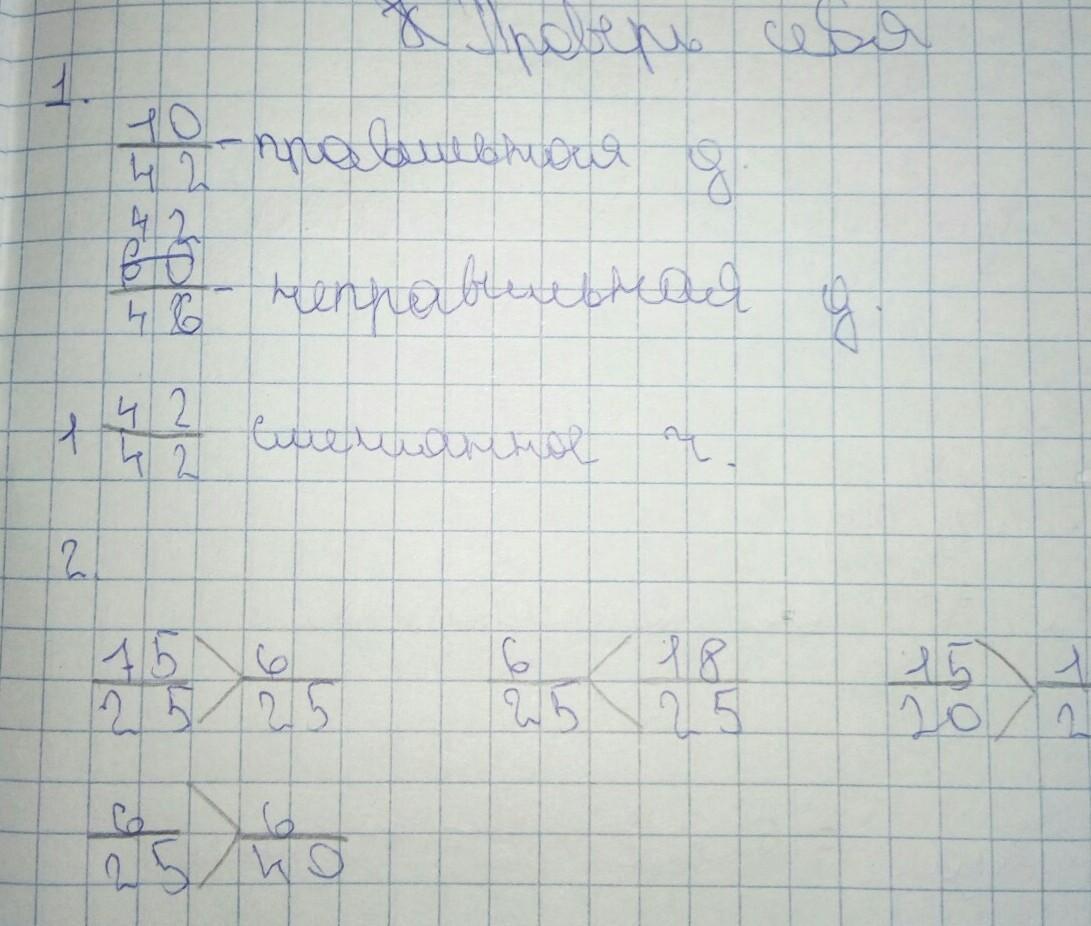 Проверь себя
1.
10/42 - правильная д.
42/46 - неправильная д.
1 42/42 смешанное ч.
2.
15/25 > 6/25 6/25 < 18/25 15/20 > 1/2
6/25 > 6/40